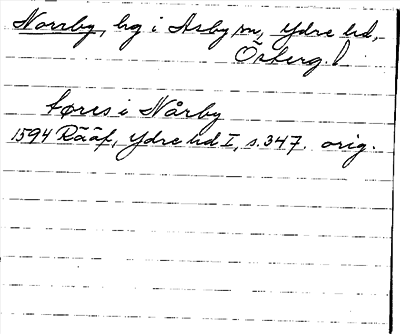 Norrby, hg i Asby sn, Ydre hd,
Österg.l
föres i Nårby
1594 Rääf, Ydre hd I, s.347. orig.